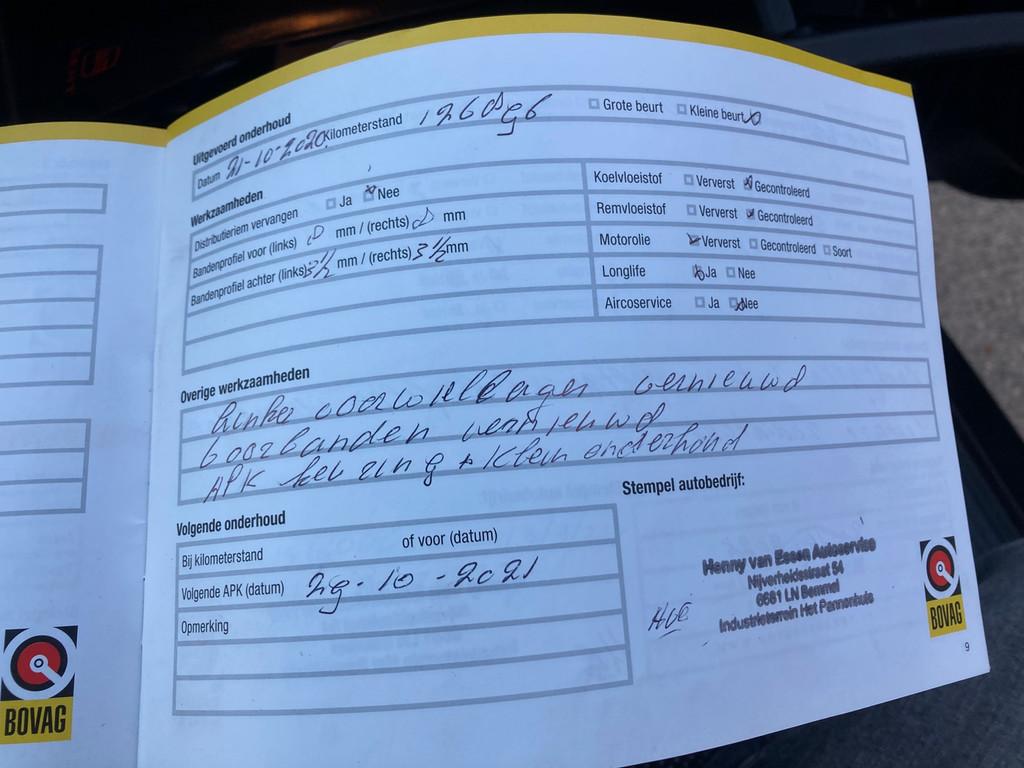 Uitgevoerd onderhoud
Datum 21-10-2020 Kilometerstand 126896 Grote beurt Kleine beurt
Werkzaamheden
Distributieriem vervangen Ja Nee
Bandenprofiel voor (links) 8 mm / (rechts) 8 mm
Bandenprofiel achter (links) 3½ mm / (rechts) 3½ mm
Koelvloeistof Ververst Gecontroleerd
Remvloeistof Ververst Gecontroleerd
Motorolie Ververst Gecontroleerd Soort
Longlife Ja Nee
Aircoservice Ja Nee
Overige werkzaamheden
linker voorwiellager vernieuwd
voorbanden vernieuwd
APK keuring + klein onderhoud
Volgende onderhoud
Bij kilometerstand of voor (datum)
Volgende APK (datum) 29-10-2021
Opmerking
Stempel autobedrijf:
Henny van Essen Autoservice
Nijverheidsstraat 54
6681 LN Bemmel
Industrieterrein Het Pannenhuis
HVE
BOVAG
9
BOVAG